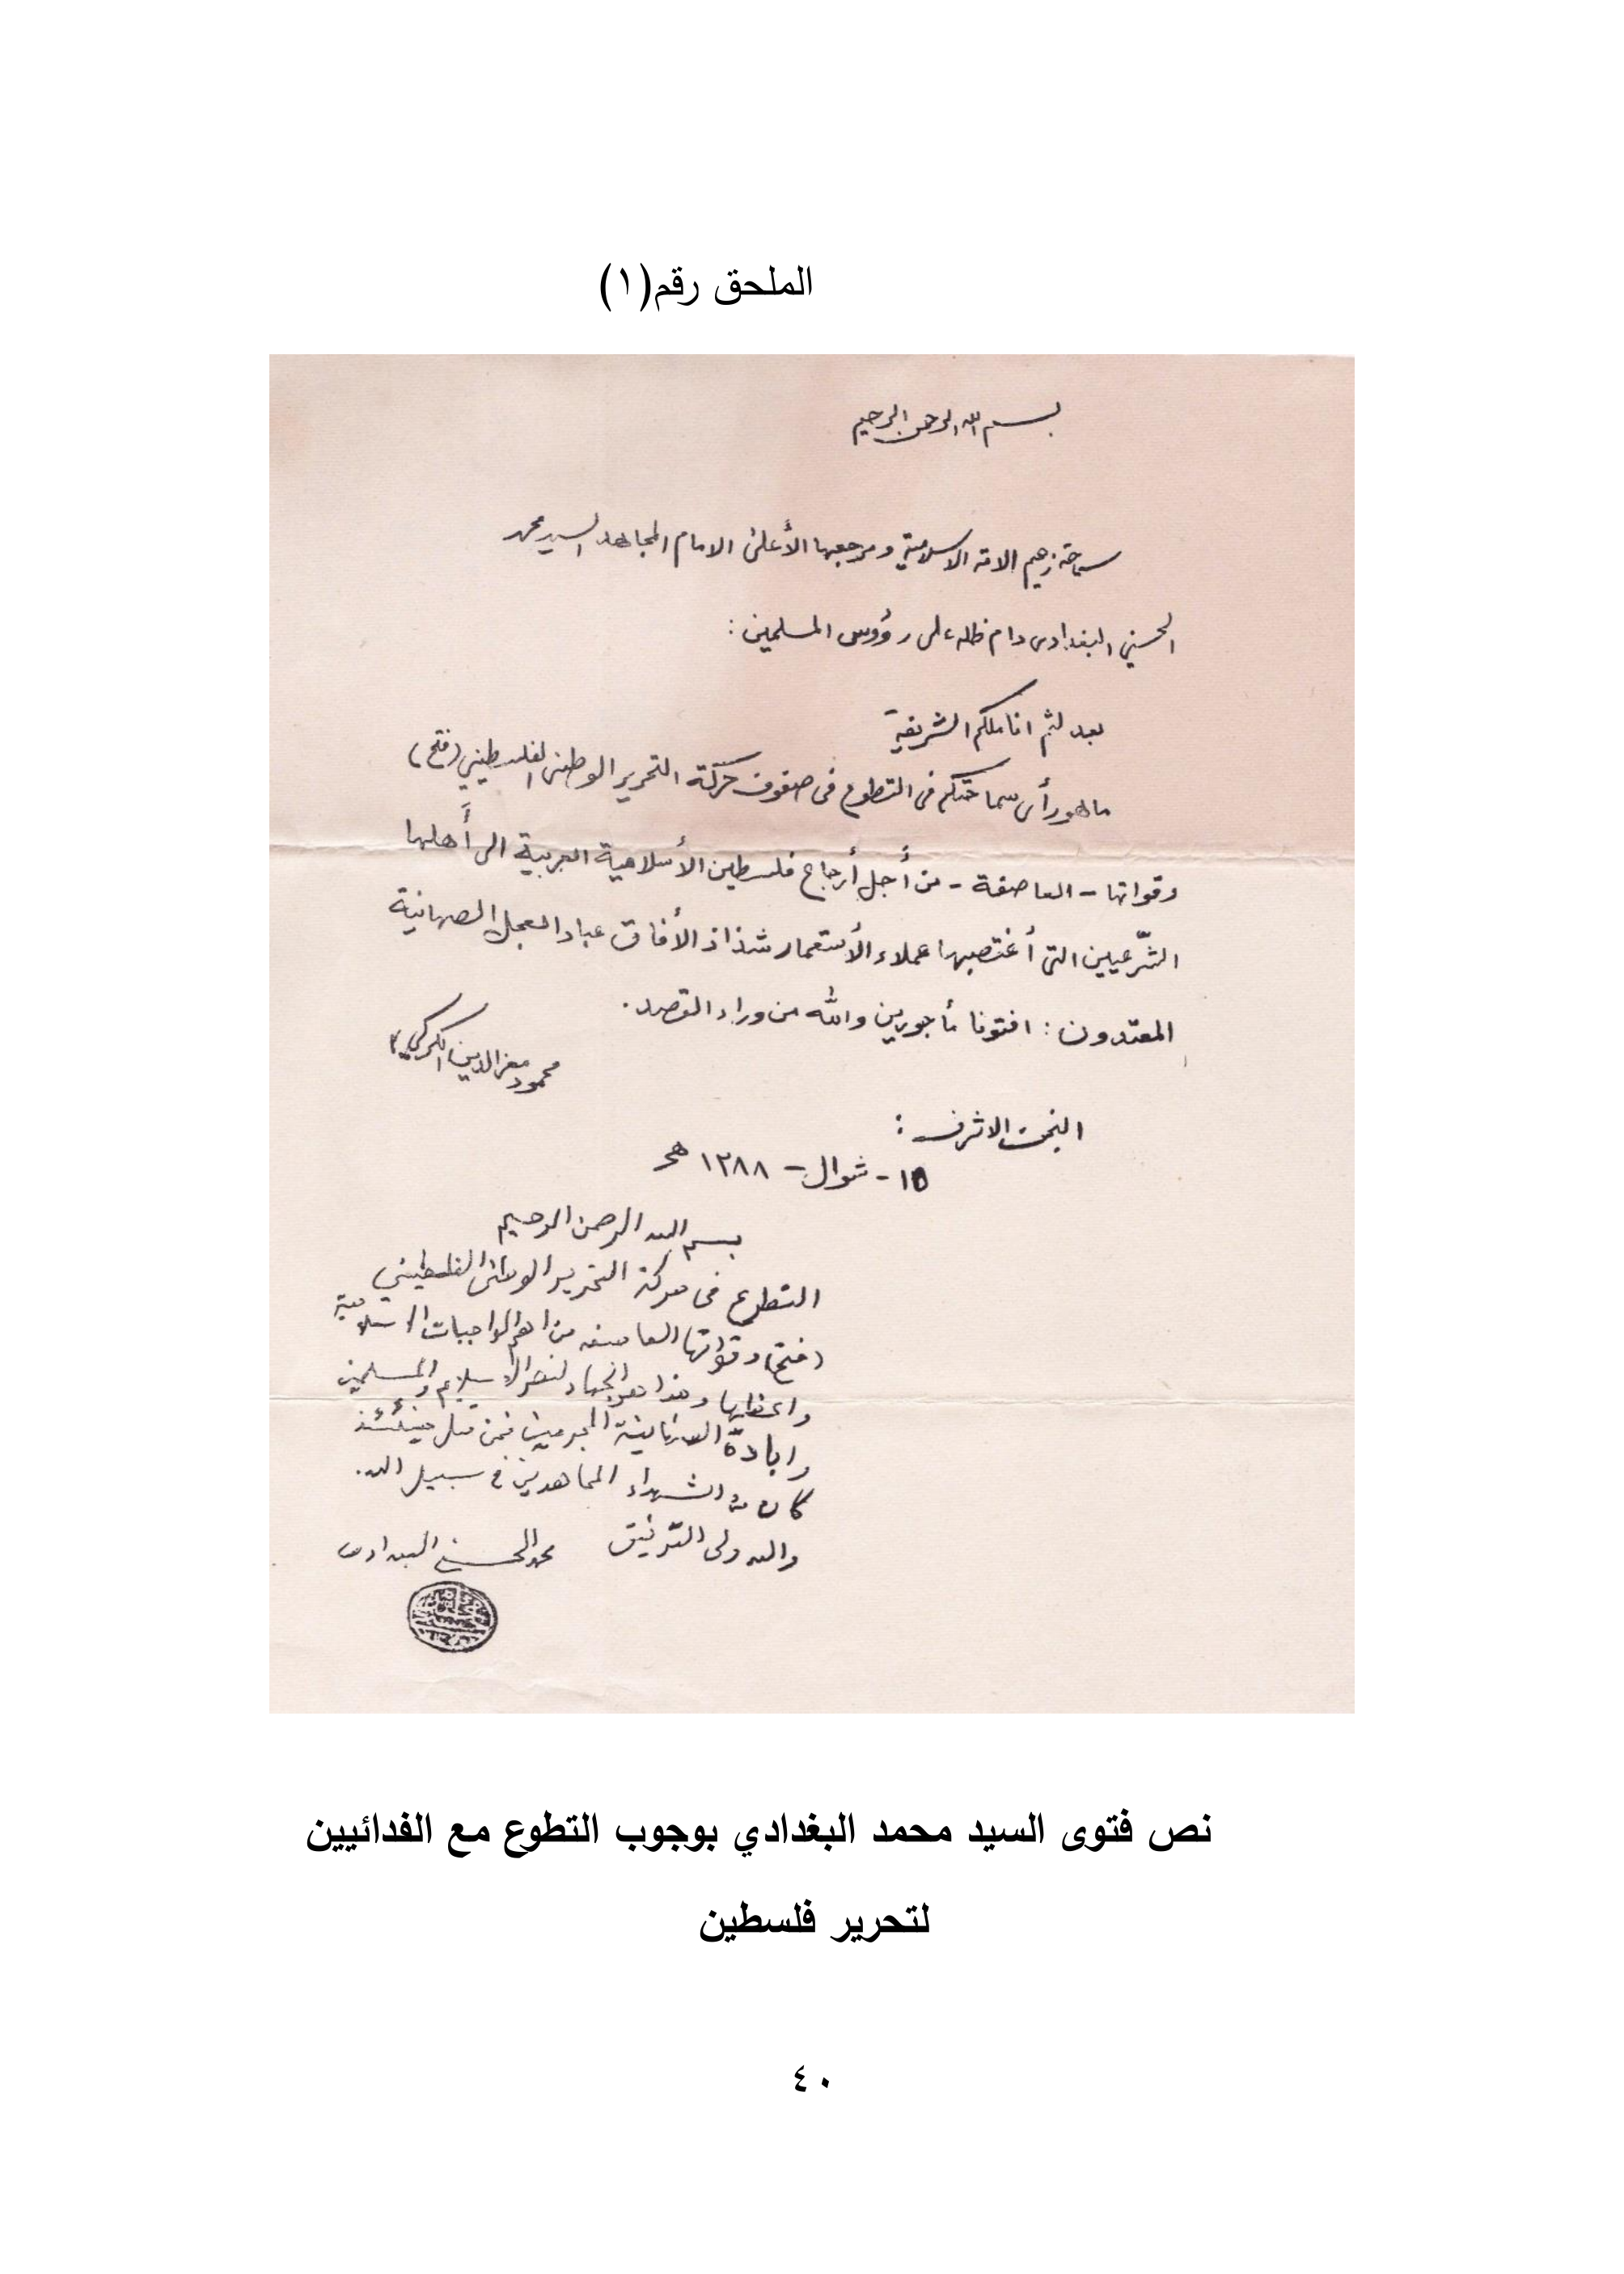 الملحق رقم(١)
بسم الله الرحمن الرحيم
سماحة زعيم الامة الاسلامية ومرجعها الأعلى الامام المجاهد السيد محمد
الحسني البغدادي دام ظله على رؤوس المسلمين :
بعد لثم اناملكم الشريفة
ما هو رأى سماحتكم فى التطوع فى صفوف حركة التحرير الوطنى الفلسطيني (فتح)
وقواتها - العاصفة - من أجل أرجاع فلسطين الأسلامية العربية الى أهلها
الشّرعيين التى أغتصبها عملاء الأستعمار شذاذ الأفاق عباد العجل الصهاينة
المعتدون : افتونا مأجورين والله من وراء القصد .
محمود معز الدين الكركي
النجف الاشرف :
١٥ - شوال - ١٣٨٨ هـ
بسم الله الرحمن الرحيم
التطوع فى حركة التحرير الوطنى الفلسطيني
(فتح) وقواتها العاصفه من اهم الواجبات الاسلامية
واعظمها وهذا هو الجهاد لنصر الاسلام والمسلمين
وابادة الصهاينة المجرمين فمن قتل حينئذ
كان من الشهداء المجاهدين في سبيل الله .
والله ولى التوفيق محمد الحسني البغدادى
نص فتوى السيد محمد البغدادي بوجوب التطوع مع الفدائيين
لتحرير فلسطين
٤٠